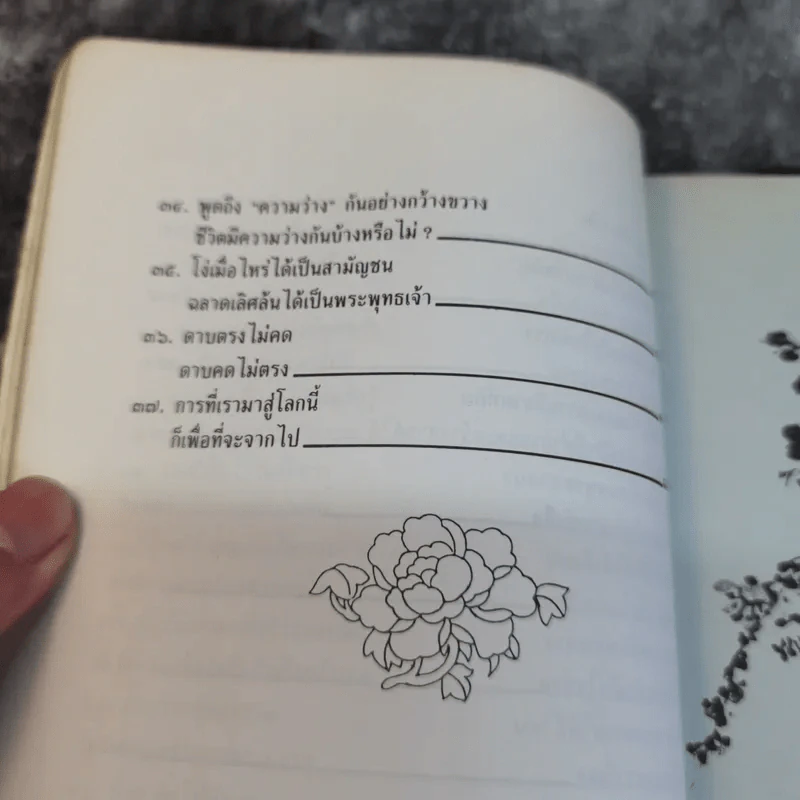 ๓๔. พูดถึง "ความว่าง" กันอย่างกว้างขวาง
ชีวิตมีความว่างกันบ้างหรือไม่ ?
๓๕. โง่เมื่อไหร่ได้เป็นสามัญชน
ฉลาดเลิศล้นได้เป็นพระพุทธเจ้า
๓๖. ดาบตรงไม่คด
ดาบคดไม่ตรง
๓๗. การที่เรามาสู่โลกนี้
ก็เพื่อที่จะจากไป